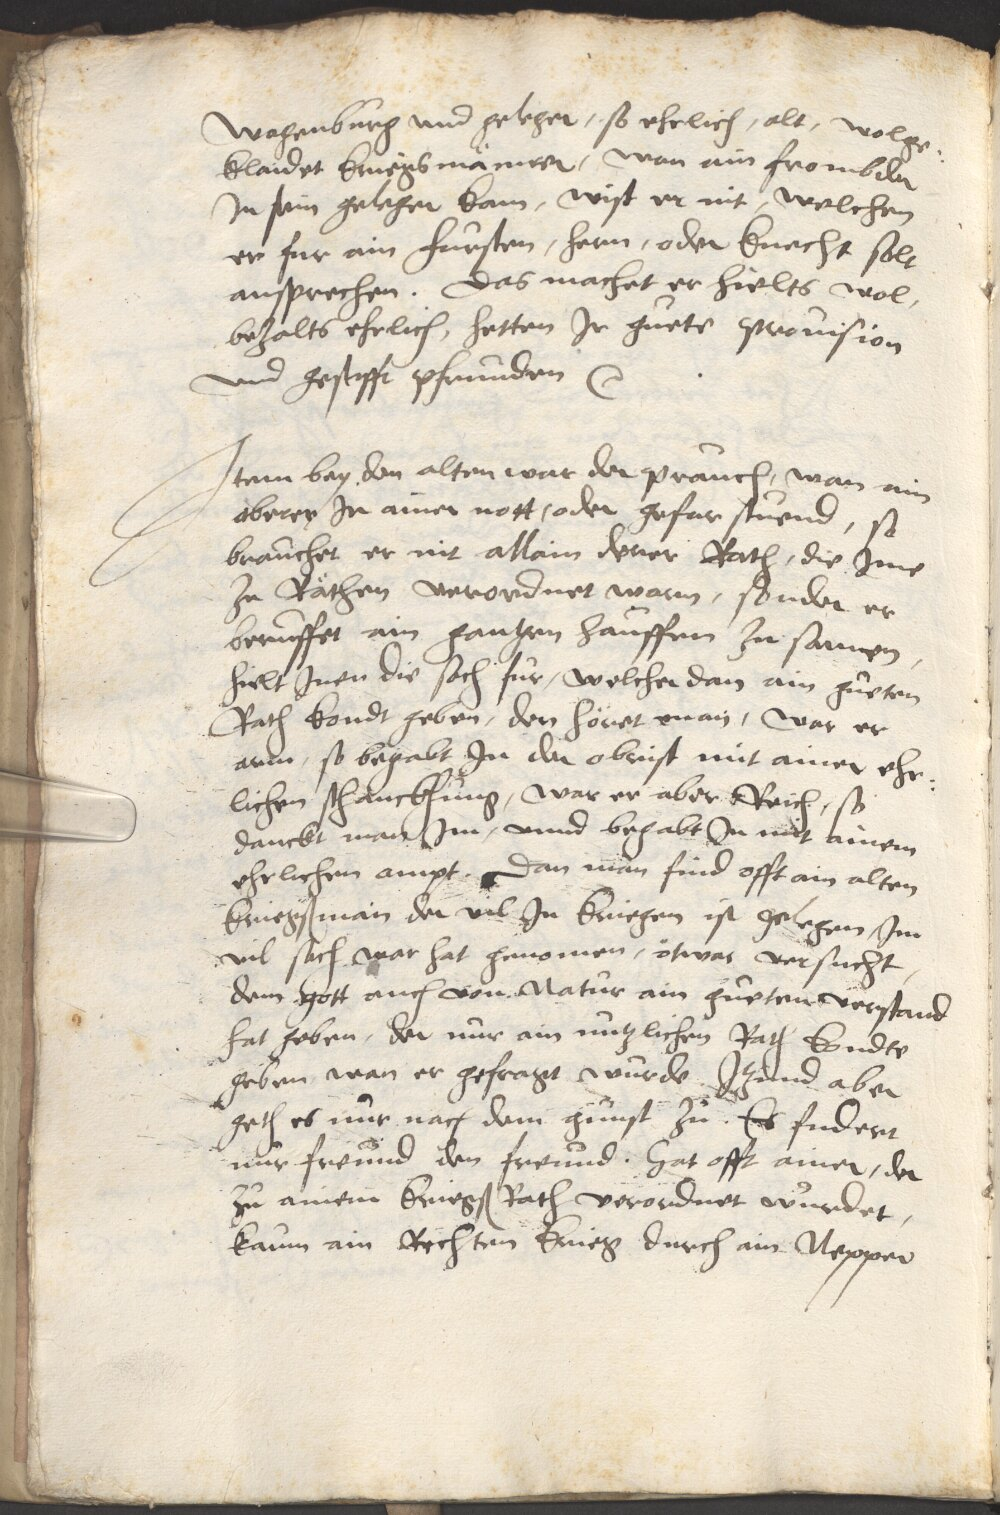 Wagenburg und geleger, so ehrlich, alt, wolge-
klaidet kriegsmänner, wan ain frombder
In sein geleger kam, wist er nit, welchen
er fur ain fursten, hern, oder knecht solt
ansprechen. Das machet er hielts wol,
bezalts ehrlich, hetten Ir guete provision
und gestifft pfrunden
Item bey den alten war der prauch, wan ain
oberer In ainer nott, oder gefar stuend, so
brauchet er nit allain derer Rath, die Ime
zu Räthen verordnet warn, sonder er
berueffet ain gantzen hauffen zu samen,
hielt Inen die sach fur, welcher dan ain gueten
Rath kondt geben, den höret man, war er
arm, so begabt In der obrist mit ainer ehr-
lichen schanckhung, war er aber Reich, so
danckt man Im, unnd begabt In mit ainem
ehrlichen ampt. Dan man find offt ain alten
kriegßman der vil In kriegen ist gelegen, Im
vil sach war hat genomen, etwas versucht,
dem gott auch von Natur ain gueten verstand
hat geben, der nur ain nutzlichen Rath kondte
geben, wan er gefragt wurde Itzund aber
geth es nur nach dem gunst zu. Es fudert
nur freund den freund. Hat offt ainer, der
zu ainem kriegß Rath verordnet wurdet,
kaum ain Rechten krieg durch ain Nepper